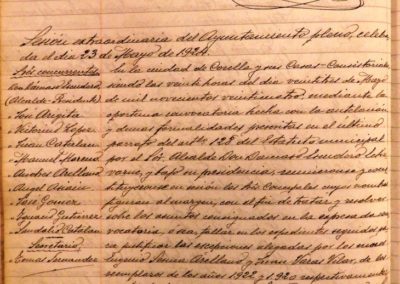 Sesión extraordinaria del Ayuntamiento pleno, celebra-
da el dia 23 de Mayo de 1924.
Sres concurrentes
(Alcalde-Presidente)
José Argita
Victorino Lopez
Juan Catalan
Manuel Moreno
Andres Arellano
Angel
José Gomez
Gutierrez
Catalan
Secretario
Tomas Fernandez
En la ciudad de Corella y sus Casas-Consistoriales
siendo las veinte horas del dia veintitres de Mayo
de mil novecientos veinticuatro, mediante la
oportuna convocatoria hecha con la antelación
y demas formalidades prescritas en el último
parrafo del artº 128 del Estatuto municipal
por el Sr. Alcalde Don Damaso
y bajo su presidencia, reunieronse y cons-
tituyeronse en sesión los Sres Concejales cuyos nombres
figuran al margen, con el fin de tratar y resolver
sobre los asuntos consignados en la expresada convo-
catoria, ó sea, fallar en los expedientes seguidos pa-
ra justificar las excepciones alegadas por los mozos
Eugenio Arellano y Juan Varas de los
reemplazos de los años 1922 y 1920 respectivamente